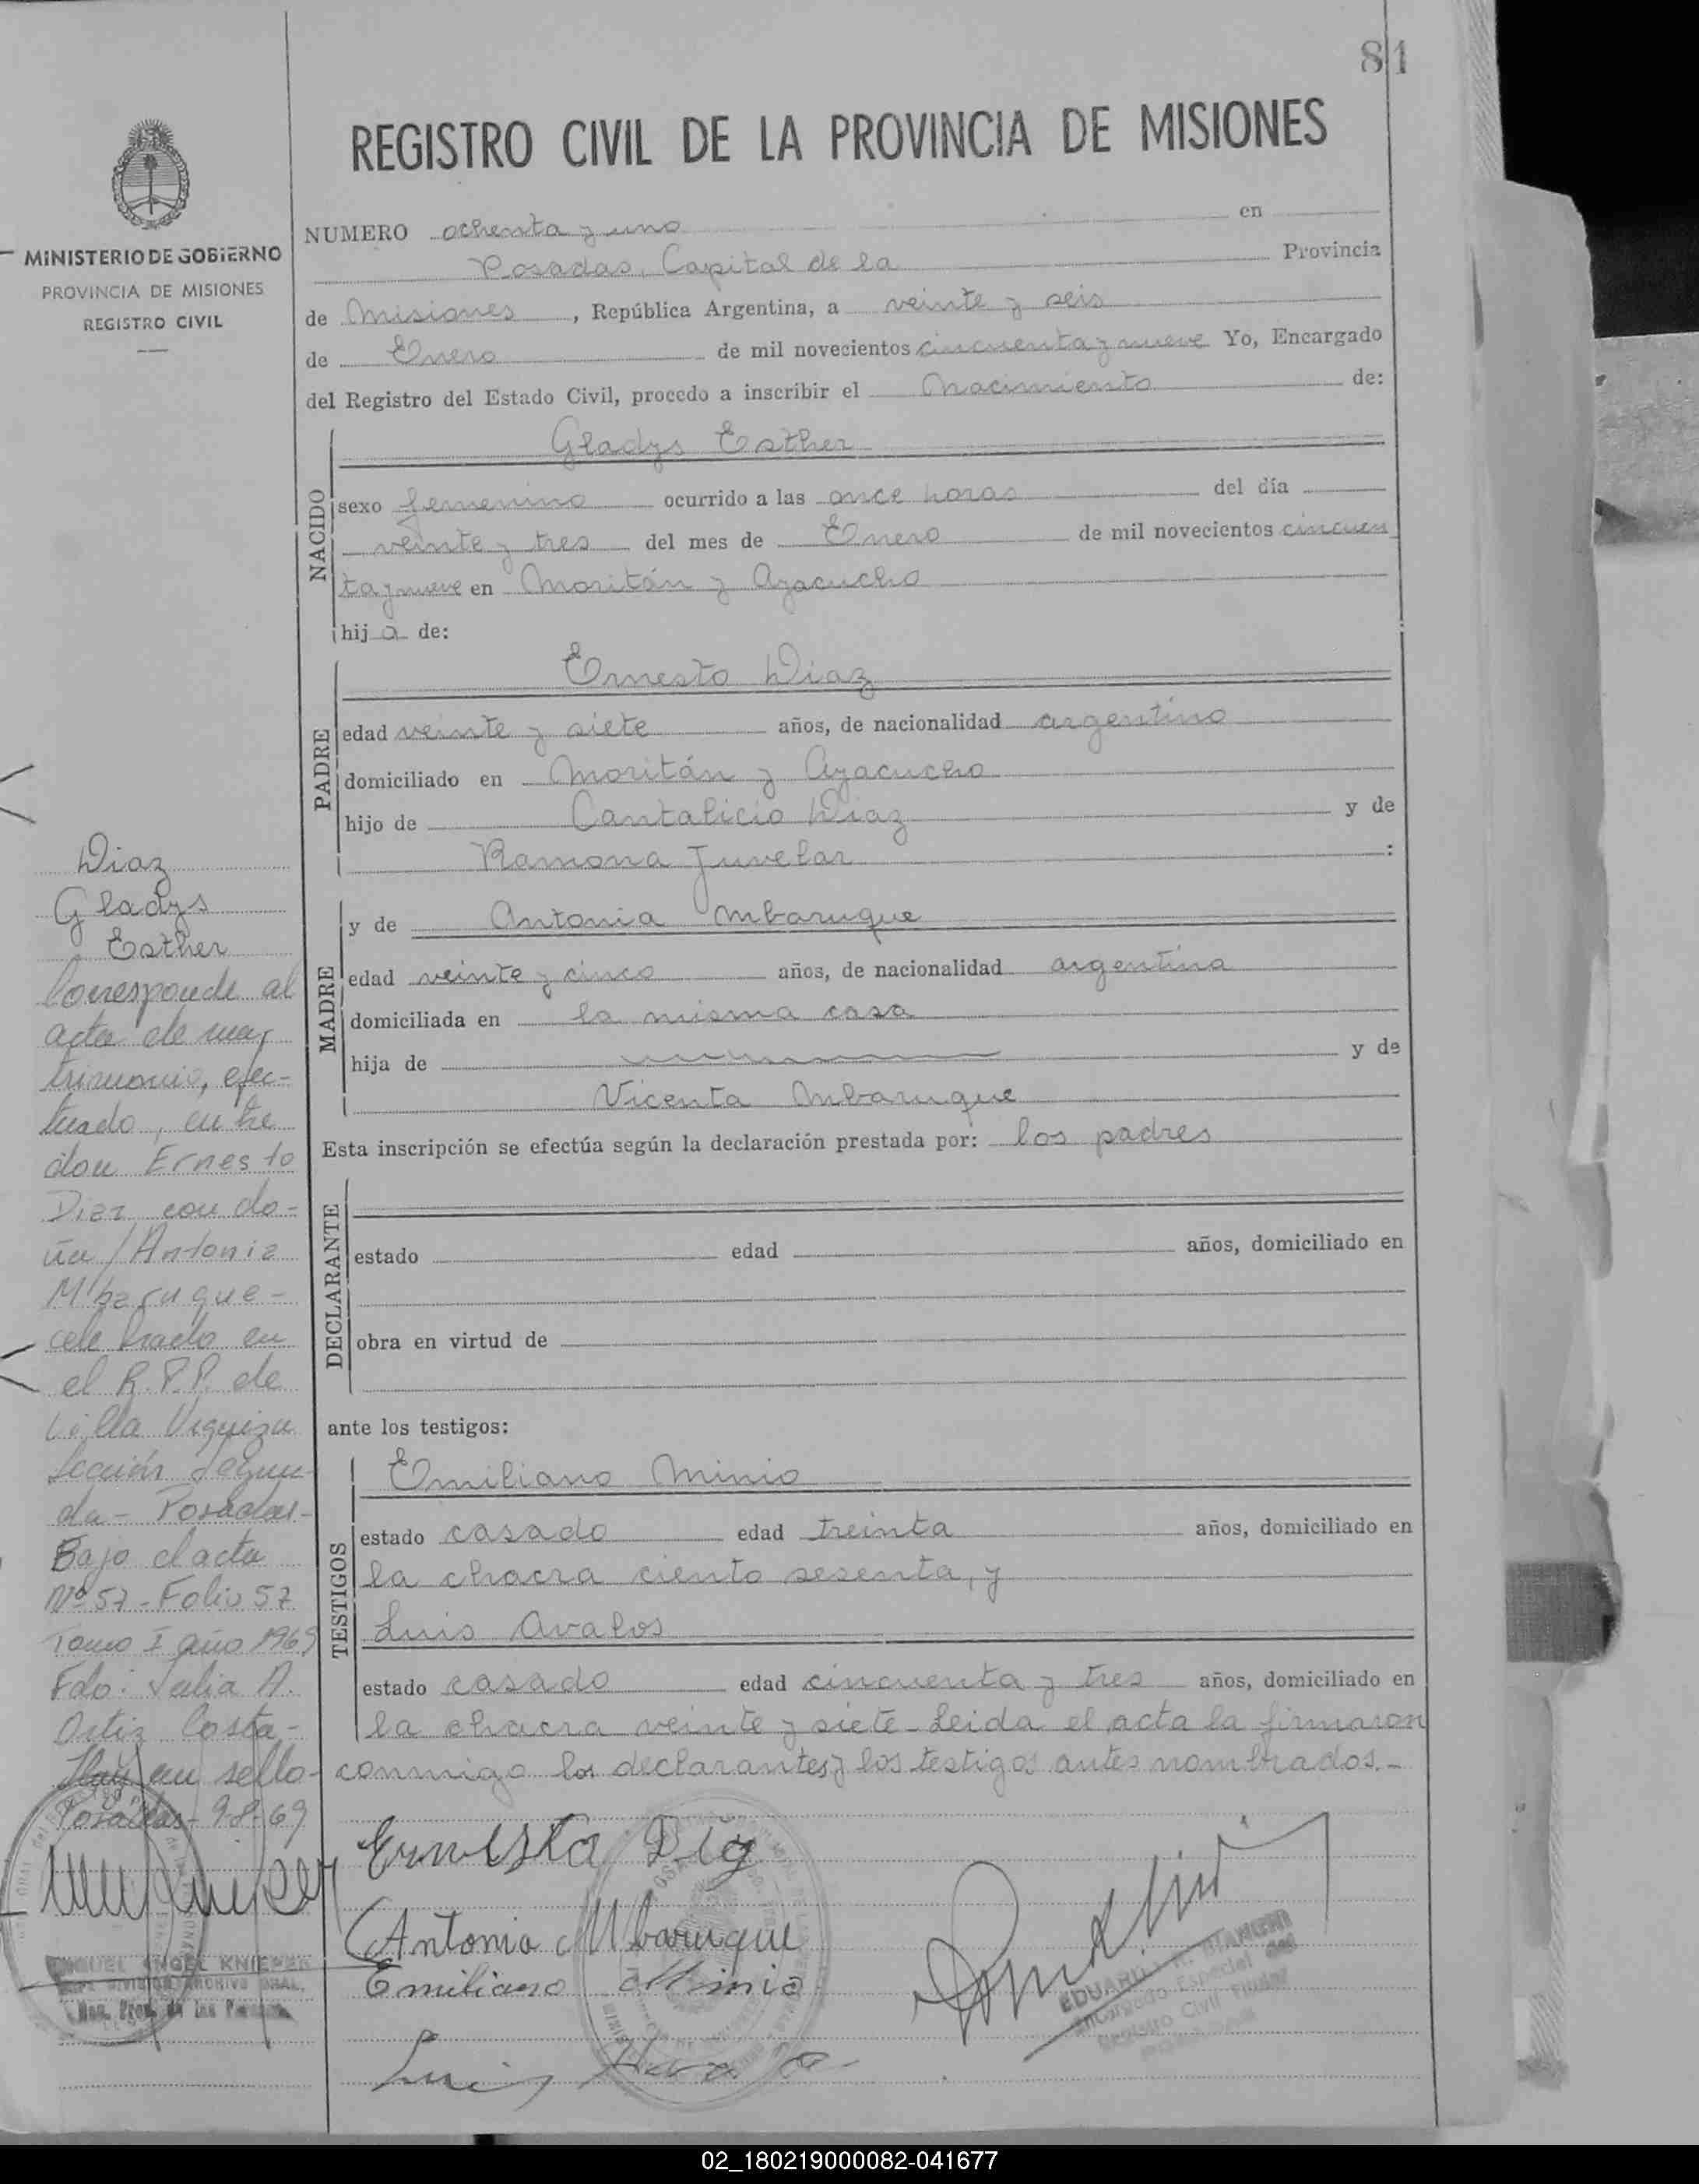 81
REGISTRO CIVIL DE LA PROVINCIA DE MISIONES
MINISTERIO DE GOBIERNO
PROVINCIA DE MISIONES
REGISTRO CIVIL
NUMERO ochenta y uno en
Posadas, Capital de la Provincia
de Misiones, República Argentina, a veinte y seis
de Enero de mil novecientos cincuenta y nueve Yo, Encargado
del Registro del Estado Civil, procedo a inscribir el Nacimiento de:
NACIDO
Gladys Esther
sexo femenino ocurrido a las once horas del día
veinte y tres del mes de Enero de mil novecientos cincuen
ta y nueve en Moritán y Ayacucho
hija de:
PADRE
Ernesto Diaz
edad veinte y siete años, de nacionalidad argentino
domiciliado en Moritán y Ayacucho
hijo de Cantalicio Diaz y de
Ramona Juvelar :
MADRE
y de Antonia Mbaruque
edad veinte y cinco años, de nacionalidad argentina
domiciliada en la misma casa
hija de y de
Vicenta Mbaruque
Esta inscripción se efectúa según la declaración prestada por: los padres
DECLARANTE
estado edad años, domiciliado en
obra en virtud de
ante los testigos:
TESTIGOS
Emiliano Minio
estado casado edad treinta años, domiciliado en
la chacra ciento sesenta, y
Luis Avalos
estado casado edad cincuenta y tres años, domiciliado en
la chacra veinte y siete - Leida el acta la firmaron
conmigo los declarantes y los testigos antes nombrados.-
Ernesto Diaz
Antonia Mbaruque
Emiliano Minio
Luis
EDUARDO
Encargado Especial del
Registro Civil Titular
POSADAS
Diaz
Gladys
Esther
Corresponde al
acta de ma-
trimonio, efec-
tuado, entre
don Ernesto
Diaz con do-
ña Antonia
M'baruque -
celebrado en
el R.P.P. de
Villa Urquiza
Sección Segun-
da - Posadas -
Bajo el acta
Nº 57 - Folio 57
Tomo I año 1969
Fdo: Julia A.
Ortiz Costa -
Hay un sello -
Posadas - 9-8-69
MIGUEL ANGEL KNIEPER
DIVISION ARCHIVO GRAL.
02_180219000082-041677